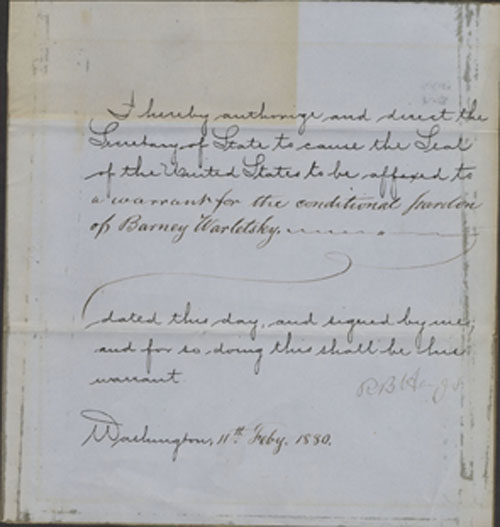 I hereby authorize and direct the
Secretary of State to cause the Seal
of the United States to be affixed to
a warrant for the conditional pardon
of Barney Warletsky.
dated this day, and signed by me;
and for so doing this shall be his
warrant
R B Hayes
Washington, 11th Feby. 1880.